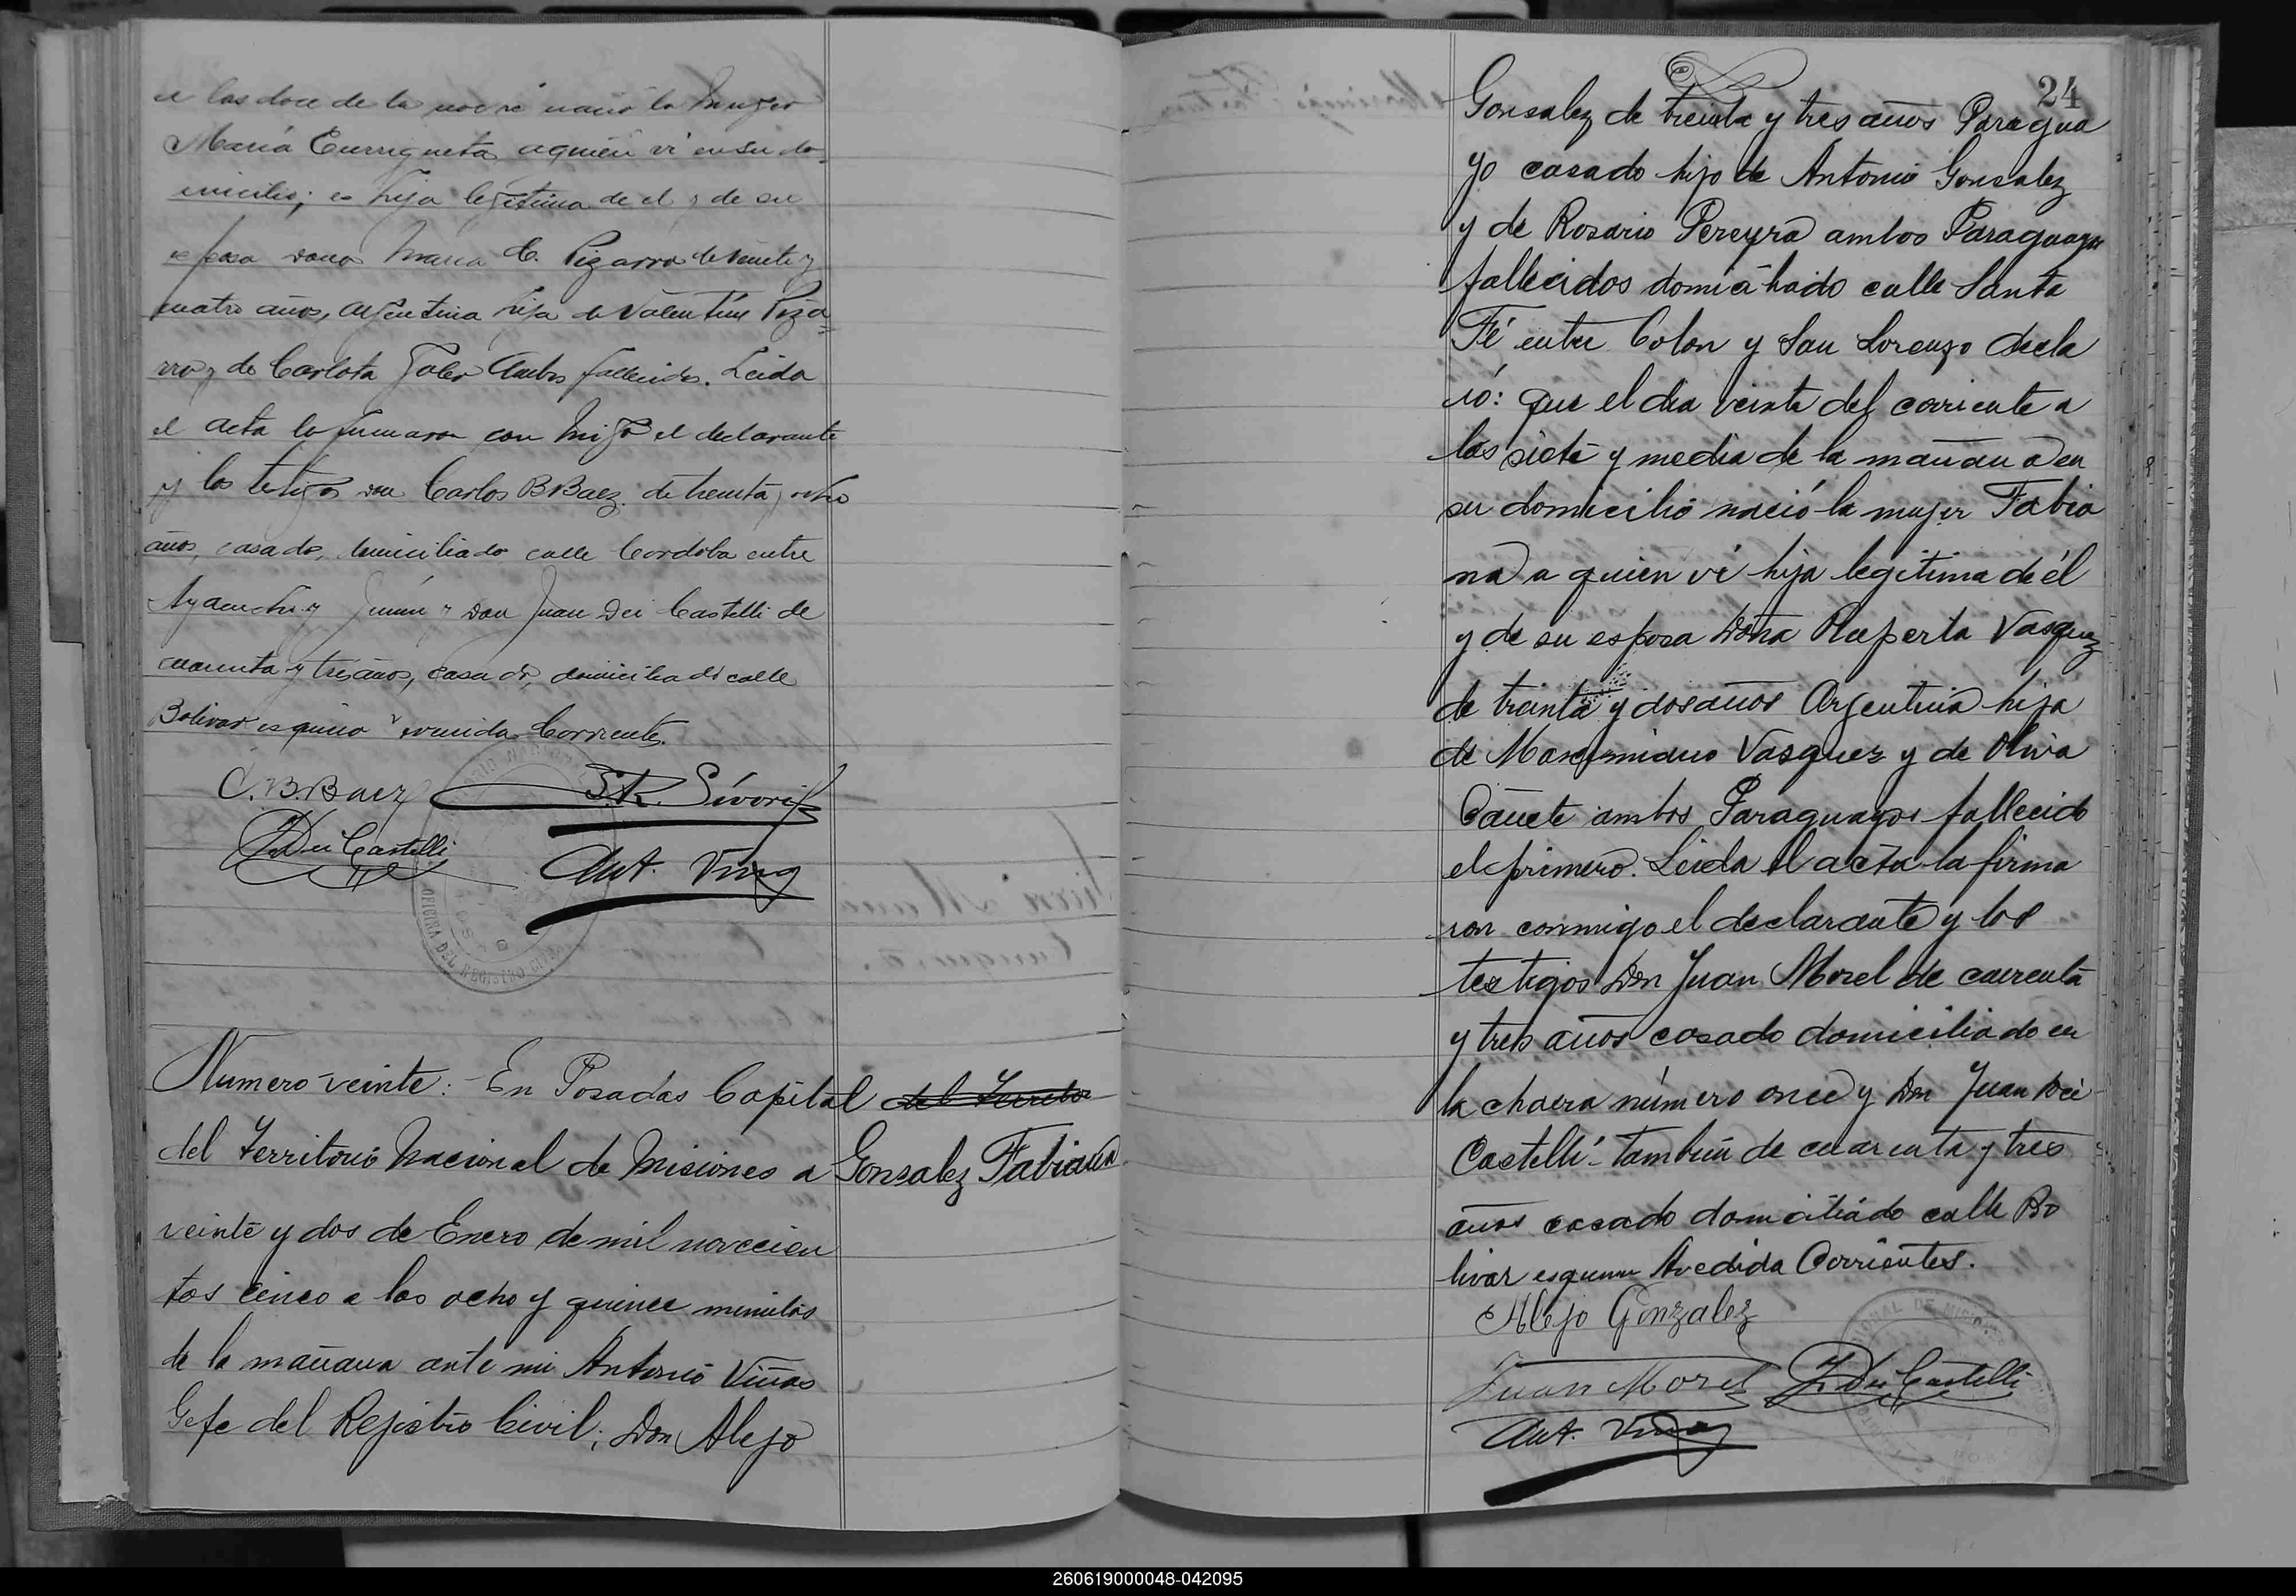 a las doce de la noche nació la mujer
María Enriqueta, a quien ví en su do-
micilio; es hija legítima de el y de su
esposa Doña Maria C. Pizarro de veinte y
cuatro años, argentina hija de Valentín Piza-
rro, y de Carlota ambos fallecidos. Leida
el acta la firmaron con migo el declarante
y los testigos don Carlos B Baez de treinta y ocho
años, casado, domiciliado calle Cordoba entre
Ayacucho y Junín y Don Juan Dei Castelli de
cuarenta y tres años, casado, domiciliado calle
Bolivar esquina Avenida Corrientes.
C. B. Baez S. R. Sívori
J. Dei Castelli Ant. Viñas
OFICINA DEL REGISTRO CIVIL
Numero veinte: En Posadas Capital del Territor
del Territorio Nacional de Misiones a
Gonsalez Fabiana
veinte y dos de Enero de mil novecien
tos cinco a las ocho y quince minutos
de la mañana ante mi Antonio Viñas
Gefe del Registro Civil; Don Alejo
24
Gonsalez de treinta y tres años Paragua
yo casado hijo de Antonio Gonsalez
y de Rosario Pereyra ambos Paraguayos
fallecidos domiciliado calle Santa
Fé entre Colon y San Lorenzo decla
ró: que el dia veinte del corriente a
las siete y media de la mañana en
su domicilio nació la mujer Fabia
na a quien ví hija legitima de él
y de su esposa Doña Ruperta Vasquez
de treinta y dos años Argentina hija
de Maximiano Vasquez y de Oliva
Cañete ambos Paraguayos fallecido
el primero. Leida el acta la firma
ron conmigo el declarante y los
testigos Don Juan Morel de cuarenta
y tres años casado domiciliado en
la chacra número once y Don Juan Dei
Castelli también de cuarenta y tres
años casado domiciliado calle Bo
livar esquina Avedida Corrientes.
Alejo Gonzalez
Juan Morel J. Dei Castelli
Ant. Viñas
260619000048-042095